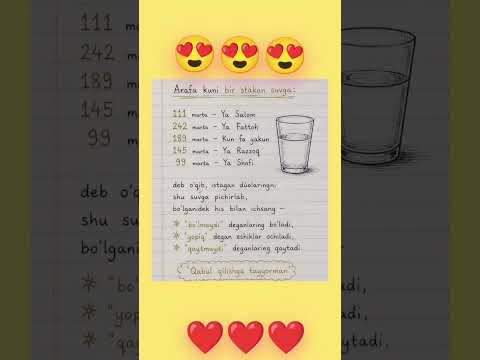 111 marta - Ya Salom
242 marta - Ya Fattoh
189 marta
145 marta
99 marta
Arafa kuni bir stakan suvga:
111 marta - Ya Salom
242 marta - Ya Fattoh
189 marta - Kun fa yakun
145 marta - Ya Razzoq
99 marta - Ya Shofi
deb o'qib, istagan duolaringni
shu suvga pichirlab,
bo'lganidek his bilan ichsang -
* "bo'lmaydi" deganlaring bo'ladi,
* "yopiq" degan eshiklar ochiladi,
* "qaytmaydi" deganlaring qaytadi
"Qabul qilishga tayyorman"